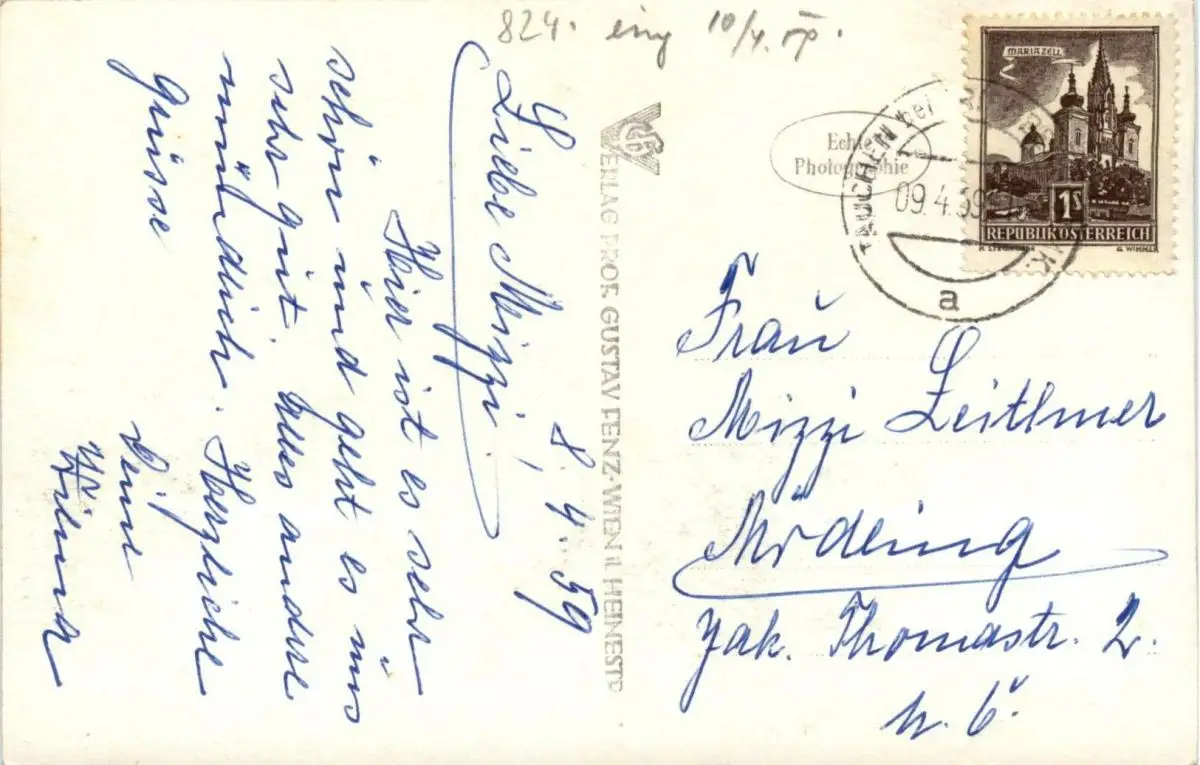 824. eing 10/4.
MARIAZELL
1S
REPUBLIK ÖSTERREICH
G. WIMMER
TAUCHEN bei
09.4.59
a
Echte
Photographie
VERLAG PROF. GUSTAV FENZ·WIEN II. HEINESTR
8. 4. 59
Liebe Mizzi,
Hier ist es sehr
schön und geht es uns
sehr gut. Alles andere
mündlich. Herzliche
Grüsse
Deine
Wilma
Frau
Mizzi Leitlmer
Mödling
Jak. Thomastr. 2.
N. Ö.